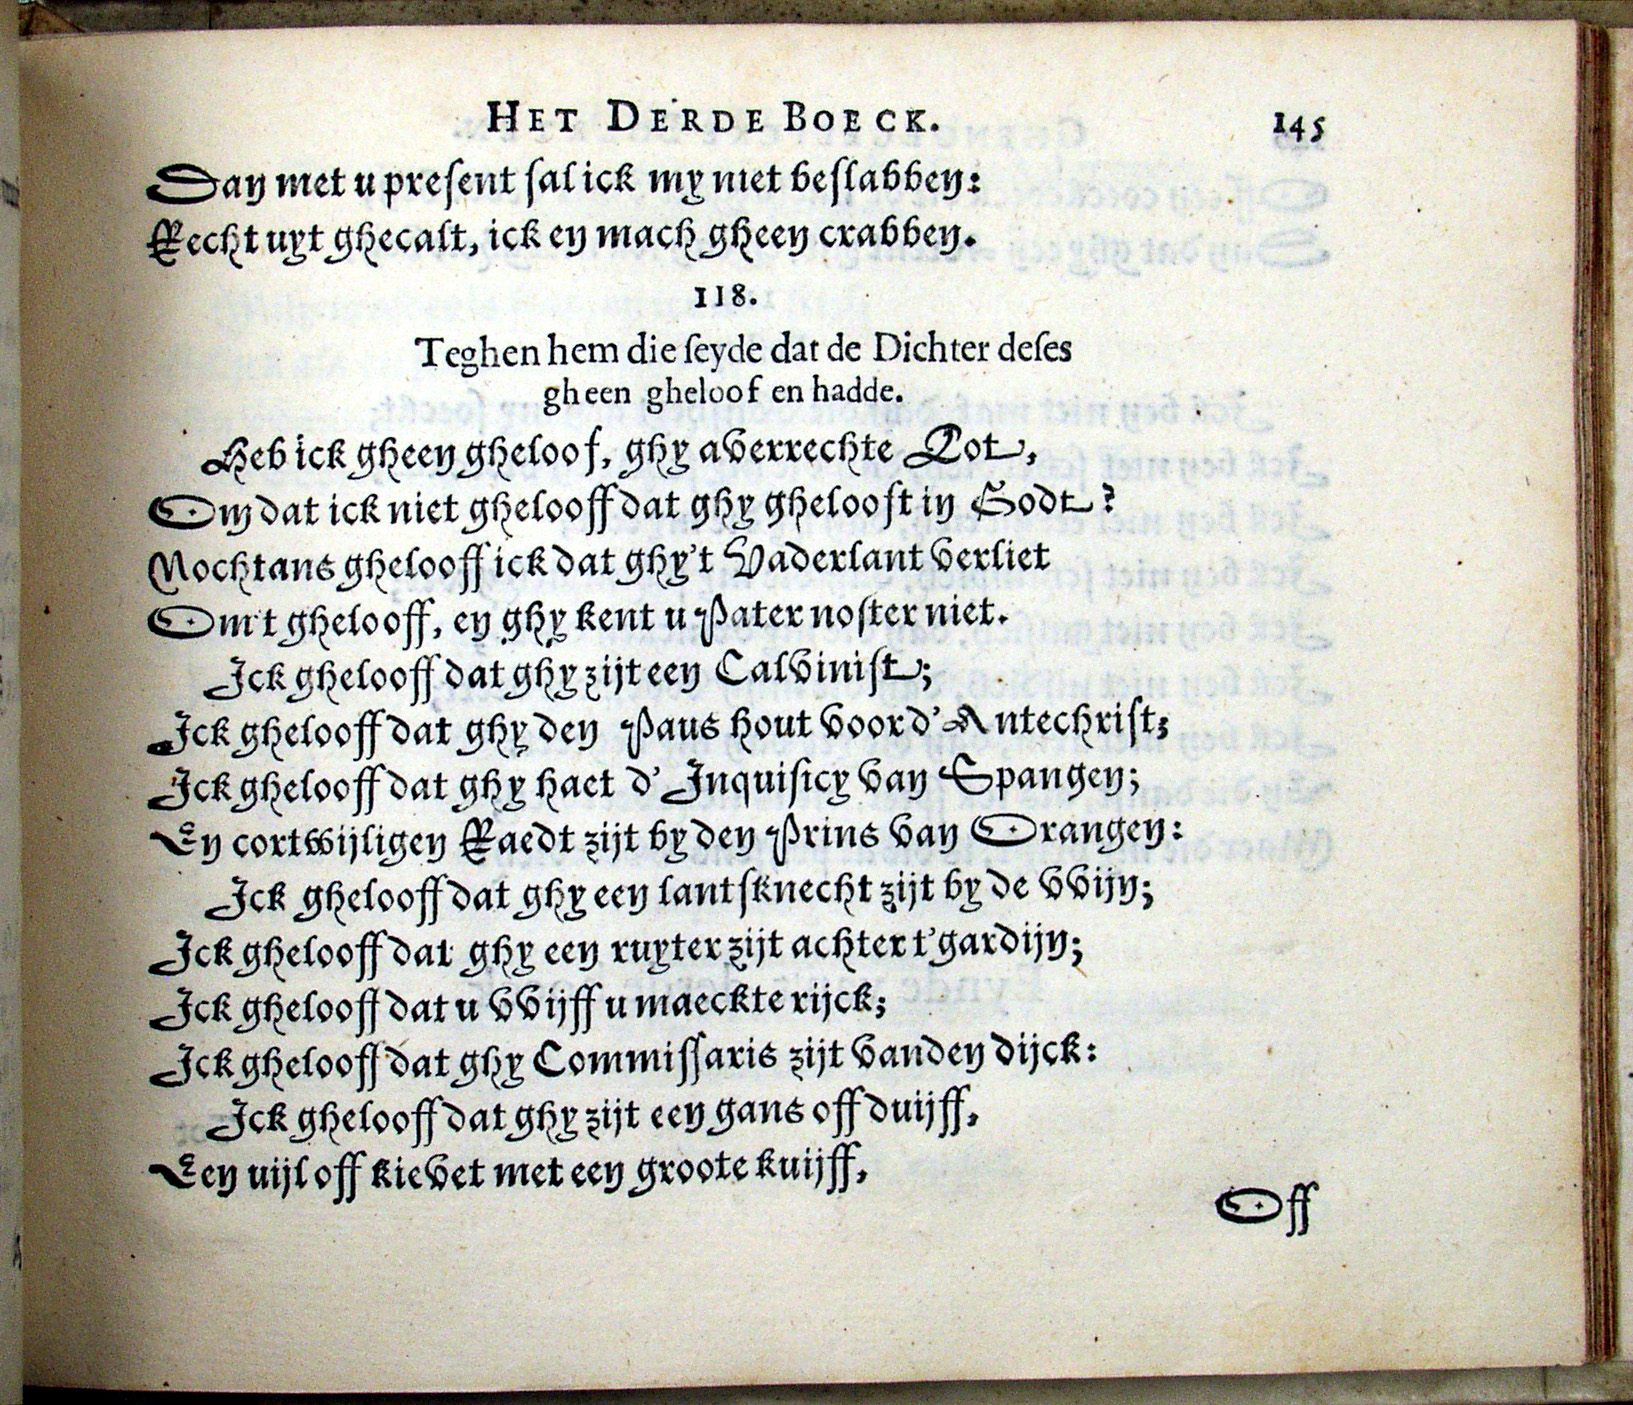 HET DERDE BOECK. 145
Dan met u preſent ſal ick my niet beſlabben:
Recht uyt ghecalt, ick en mach gheen crabben.
118.
Teghen hem die ſeyde dat de Dichter deſes
gheen gheloof en hadde.
Heb ick gheen gheloof, ghy averrechte Qot,
Om dat ick niet ghelooff dat ghy ghelooft in Godt?
Nochtans ghelooff ick dat ghy't Vaderlant verliet
Om't ghelooff, en ghy kent u Pater noſter niet.
Ick ghelooff dat ghy zijt een Calviniſt;
Ick ghelooff dat ghy den Paus hout voor d'Antechriſt;
Ick ghelooff dat ghy haet d'Inquiſicy van Spangen;
En cortwijligen Raedt zijt by den Prins van Orangen:
Ick ghelooff dat ghy een lantſknecht zijt by de vvijn;
Ick ghelooff dat ghy een ruyter zijt achter t'gardijn;
Ick ghelooff dat u vvijff u maeckte rijck;
Ick ghelooff dat ghy Commiſſaris zijt vanden dijck:
Ick ghelooff dat ghy zijt een gans off duijff,
Een uijl off kievet met een groote kuijff,
Off